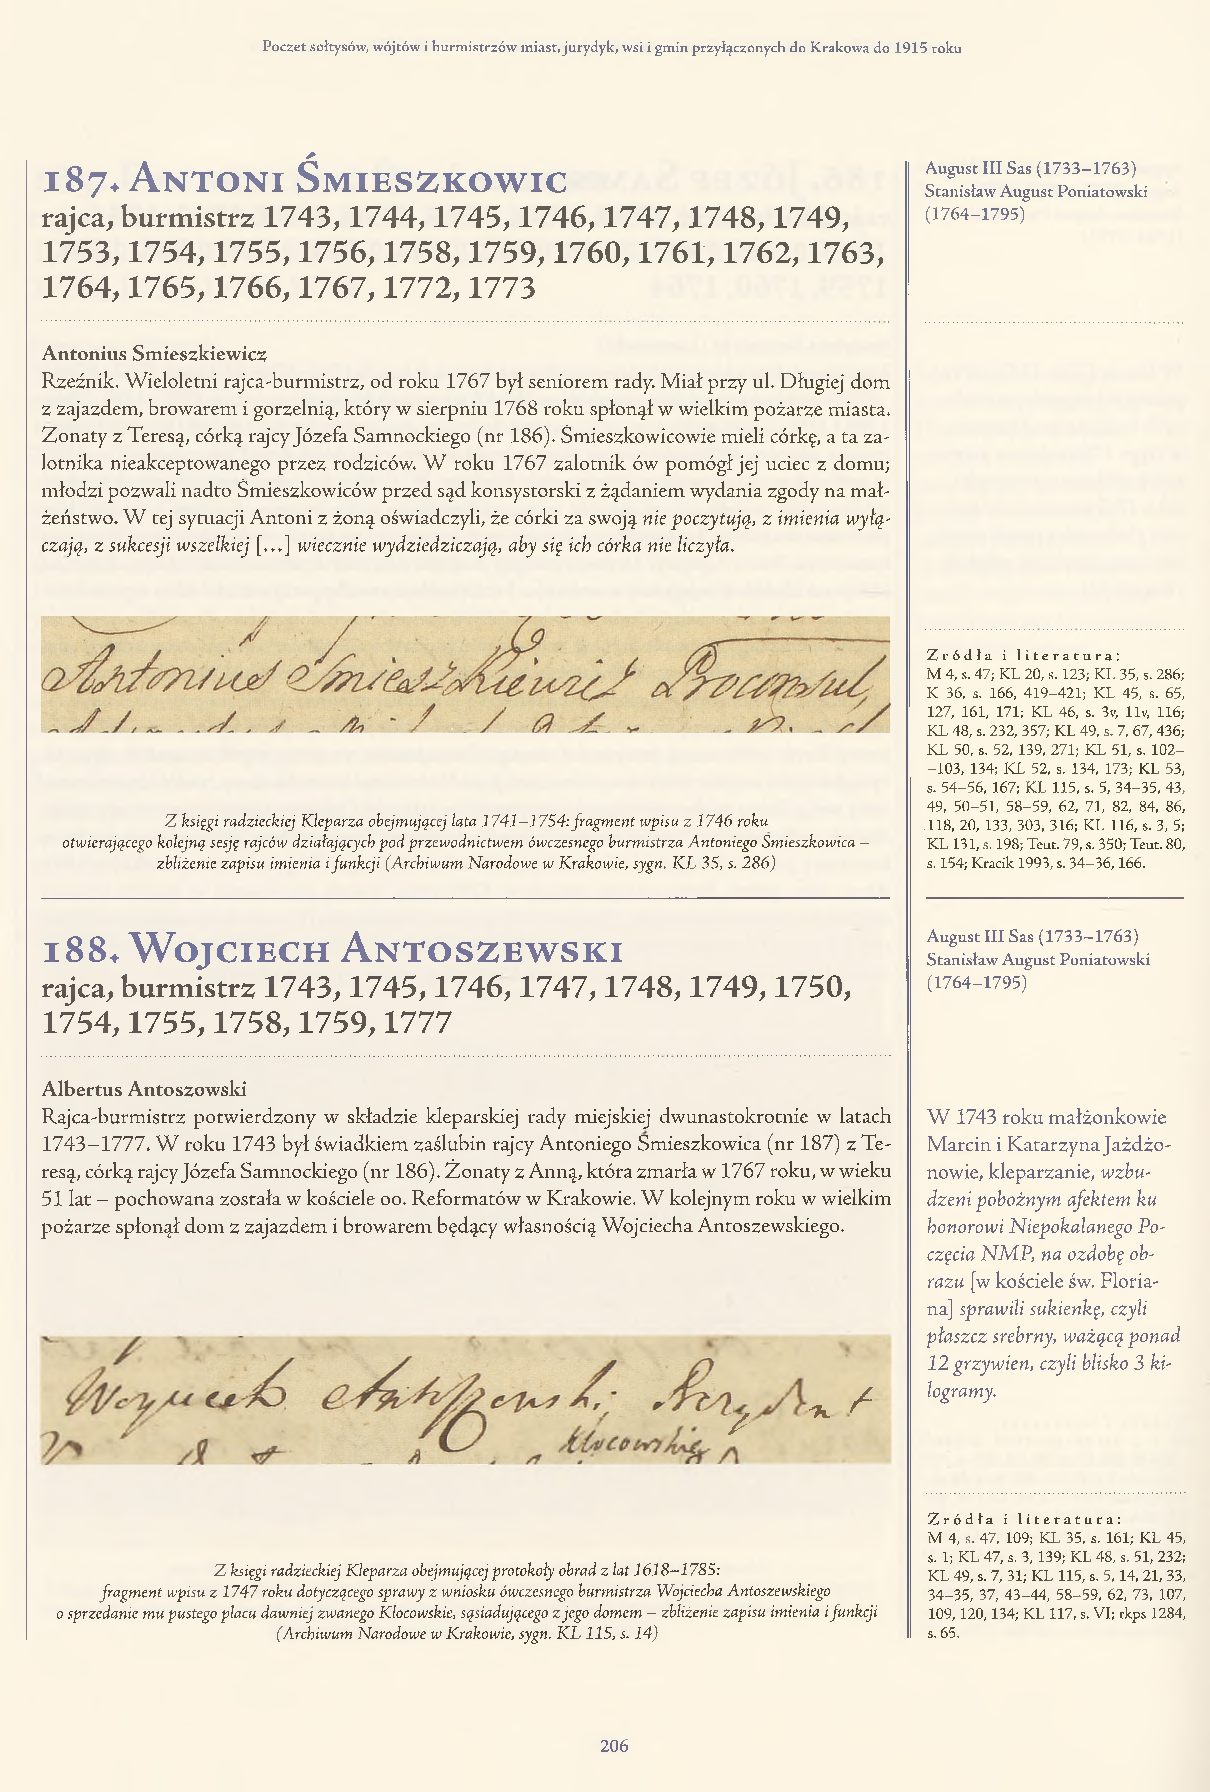 Poczet sołtysów, wójtów i burmistrzów miast, jurydyk, wsi i gmin przyłączonych do Krakowa do 1915 roku
187. Antoni Śmieszkowic
rajca, burmistrz 1743, 1744, 1745, 1746, 1747, 1748, 1749,
1753, 1754, 1755, 1756, 1758, 1759, 1760, 1761, 1762, 1763,
1764, 1765, 1766, 1767, 1772, 1773
Antonius Smieszkiewicz
Rzeźnik. Wieloletni rajca-burmistrz, od roku 1767 był seniorem rady. Miał przy ul. Długiej dom
z zajazdem, browarem i gorzelnią, który w sierpniu 1768 roku spłonął w wielkim pożarze miasta.
Żonaty z Teresą, córką rajcy Józefa Samnockiego (nr 186). Śmieszkowicowie mieli córkę, a ta za-
lotnika nieakceptowanego przez rodziców. W roku 1767 zalotnik ów pomógł jej uciec z domu;
młodzi pozwali nadto Śmieszkowiców przed sąd konsystorski z żądaniem wydania zgody na mał-
żeństwo. W tej sytuacji Antoni z żoną oświadczyli, że córki za swoją nie poczytują, z imienia wyłą-
czają, z sukcesji wszelkiej [...] wiecznie wydziedziczają, aby się ich córka nie liczyła.
Antonius Smieszkiewicz Proconsul,
Z księgi radzieckiej Kleparza obejmującej lata 1741–1754: fragment wpisu z 1746 roku
otwierającego kolejną sesję rajców działających pod przewodnictwem ówczesnego burmistrza Antoniego Śmieszkowica –
zbliżenie zapisu imienia i funkcji (Archiwum Narodowe w Krakowie, sygn. KL 35, s. 286)
August III Sas (1733–1763)
Stanisław August Poniatowski
(1764–1795)
Źródła i literatura:
M 4, s. 47; KL 20, s. 123; KL 35, s. 286;
K 36, s. 166, 419–421; KL 45, s. 65,
127, 161, 171; KL 46, s. 3v, 11v, 116;
KL 48, s. 232, 357; KL 49, s. 7, 67, 436;
KL 50, s. 52, 139, 271; KL 51, s. 102–
–103, 134; KL 52, s. 134, 173; KL 53,
s. 54–56, 167; KL 115, s. 5, 34–35, 43,
49, 50–51, 58–59, 62, 71, 82, 84, 86,
118, 20, 133, 303, 316; KL 116, s. 3, 5;
KL 131, s. 198; Teut. 79, s. 350; Teut. 80,
s. 154; Kracik 1993, s. 34–36, 166.
188. Wojciech Antoszewski
rajca, burmistrz 1743, 1745, 1746, 1747, 1748, 1749, 1750,
1754, 1755, 1758, 1759, 1777
Albertus Antoszowski
Rajca-burmistrz potwierdzony w składzie kleparskiej rady miejskiej dwunastokrotnie w latach
1743–1777. W roku 1743 był świadkiem zaślubin rajcy Antoniego Śmieszkowica (nr 187) z Te-
resą, córką rajcy Józefa Samnockiego (nr 186). Żonaty z Anną, która zmarła w 1767 roku, w wieku
51 lat – pochowana została w kościele oo. Reformatów w Krakowie. W kolejnym roku w wielkim
pożarze spłonął dom z zajazdem i browarem będący własnością Wojciecha Antoszewskiego.
Klocowskie
Z księgi radzieckiej Kleparza obejmującej protokoły obrad z lat 1618–1785:
fragment wpisu z 1747 roku dotyczącego sprawy z wniosku ówczesnego burmistrza Wojciecha Antoszewskiego
o sprzedanie mu pustego placu dawniej zwanego Klocowskie, sąsiadującego z jego domem – zbliżenie zapisu imienia i funkcji
(Archiwum Narodowe w Krakowie, sygn. KL 115, s. 14)
August III Sas (1733–1763)
Stanisław August Poniatowski
(1764–1795)
W 1743 roku małżonkowie
Marcin i Katarzyna Jażdżo-
nowie, kleparzanie, wzbu-
dzeni pobożnym afektem ku
honorowi Niepokalanego Po-
częcia NMP, na ozdobę ob-
razu [w kościele św. Floria-
na] sprawili sukienkę, czyli
płaszcz srebrny, ważącą ponad
12 grzywien, czyli blisko 3 ki-
logramy.
Źródła i literatura:
M 4, s. 47, 109; KL 35, s. 161; KL 45,
s. 1; KL 47, s. 3, 139; KL 48, s. 51, 232;
KL 49, s. 7, 31; KL 115, s. 5, 14, 21, 33,
34–35, 37, 43–44, 58–59, 62, 73, 107,
109, 120, 134; KL 117, s. VI; rkps 1284,
s. 65.
206